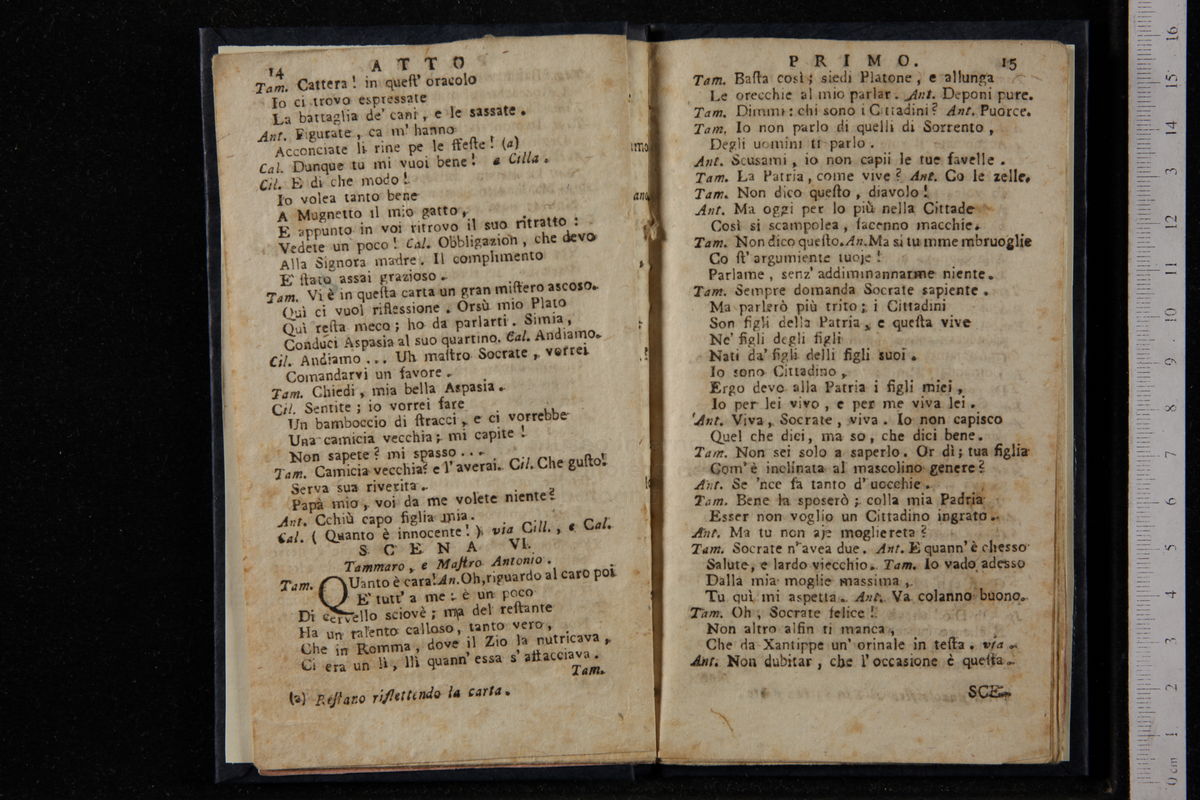 14 ATTO
Tam. Cattera! in queſt' oracolo
Io ci trovo espressate
La battaglia de' cani, e le sassate.
Ant. Figurate, ca m' hanno
Acconciate li rine pe le ffeſte! (a)
Cal. Dunque tu mi vuoi bene! a Cilla.
Cil. E di che modo!
Io volea tanto bene
A Mugnetto il mio gatto,
E appunto in voi ritrovo il suo ritratto:
Vedete un poco! Cal. Obbligazion, che devo
Alla Signora madre. Il complimento
E' ſtato assai grazioso.
Tam. Vi è in queſta carta un gran miſtero ascoso.
Quì ci vuol riflessione. Orsù mio Plato
Quì reſta meco; ho da parlarti. Simia,
Conduci Aspasia al suo quartino. Cal. Andiamo.
Cil. Andiamo... Uh maſtro Socrate, vorrei
Comandarvi un favore.
Tam. Chiedi, mia bella Aspasia.
Cil. Sentite; io vorrei fare
Un bamboccio di ſtracci, e ci vorrebbe
Una camicia vecchia; mi capite!
Non sapete? mi spasso...
Tam. Camicia vecchia? e l'averai. Cil. Che guſto!
Serva sua riverita.
Papà mio, voi da me volete niente?
Ant. Cchiù capo figlia mia.
Cal. (Quanto è innocente!) via Cill., e Cal.
SCENA VI.
Tammaro, e Maſtro Antonio.
Tam. QUanto è cara! An. Oh, riguardo al caro poi
E' tutt' a me: è un poco
Di cervello sciovè; ma del reſtante
Ha un talento calloso, tanto vero,
Che in Romma, dove il Zio la nutricava,
Ci era un lì, llì quann' essa s' affacciava.
Tam.
(a) Reſtano riflettendo la carta.
PRIMO. 15
Tam. Baſta così; siedi Platone, e allunga
Le orecchie al mio parlar. Ant. Deponi pure.
Tam. Dimmi: chi sono i Cittadini? Ant. Puorce.
Tam. Io non parlo di quelli di Sorrento,
Degli uomini ti parlo.
Ant. Scusami, io non capii le tue favelle.
Tam. La Patria, come vive? Ant. Co le zelle.
Tam. Non dico queſto, diavolo!
Ant. Ma oggi per lo più nella Cittade
Così si scampolea, facenno macchie.
Tam. Non dico queſto. An. Ma si tu mme mbruoglie
Co ſt' argumiente tuoje!
Parlame, senz' addimmannarme niente.
Tam. Sempre domanda Socrate sapiente.
Ma parlerò più trito; i Cittadini
Son figli della Patria, e queſta vive
Ne' figli degli figli
Nati da' figli delli figli suoi.
Io sono Cittadino,
Ergo devo alla Patria i figli miei,
Io per lei vivo, e per me viva lei.
Ant. Viva, Socrate, viva. Io non capisco
Quel che dici, ma so, che dici bene.
Tam. Non sei solo a saperlo. Or dì; tua figlia
Com' è inclinata al mascolino genere?
Ant. Se 'nce fa tanto d' uocchie.
Tam. Bene la sposerò; colla mia Padria
Esser non voglio un Cittadino ingrato.
Ant. Ma tu non aje mogliereta?
Tam. Socrate n' avea due. Ant. E quann' è chesso
Salute, e lardo viecchio. Tam. Io vado adesso
Dalla mia moglie massima,
Tu quì mi aspetta. Ant. Va colanno buono.
Tam. Oh, Socrate felice!
Non altro alfin ti manca,
Che da Xantippe un' orinale in teſta. via.
Ant. Non dubitar, che l'occasione è queſta.
SCE-